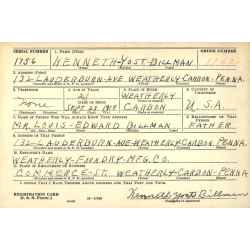 SERIAL NUMBER 1. NAME (Print) ORDER NUMBER
1756 KENNETH-YOST-BILLMAN
2. ADDRESS (Print)
132-LAUDERBURN-AVE-WEATHERLY-CARBON-PENNA.
3. TELEPHONE 4. AGE IN YEARS 5. PLACE OF BIRTH 6. COUNTRY OF CITIZENSHIP
21 WEATHERLY
none DATE OF BIRTH
SEPT-23-1919 CARBON U.S.A.
7. NAME OF PERSON WHO WILL ALWAYS KNOW YOUR ADDRESS 8. RELATIONSHIP OF THAT PERSON
MR. LOUIS-EDWARD BILLMAN FATHER
9. ADDRESS OF THAT PERSON
132-LAUDERBURN-AVE-WEATHERLY-CARBON-PENNA.
10. EMPLOYER'S NAME
WEATHERLY-FOUNDRY-MFG.CO.
11. PLACE OF EMPLOYMENT OR BUSINESS
COMMERCE-ST. WEATHERLY-CARBON-PENNA.
I AFFIRM THAT I HAVE VERIFIED ABOVE ANSWERS AND THAT THEY ARE TRUE.
REGISTRATION CARD
D. S. S. Form 1 Kenneth Yost Billman